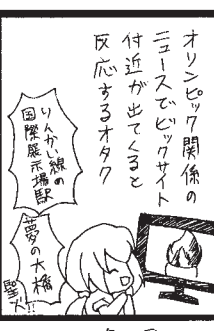 オリンピック関係の
ニュースでビックサイト
付近が出てくると
反応するオタク
りんかい線の
国際展示場駅
夢の大橋
聖火!!